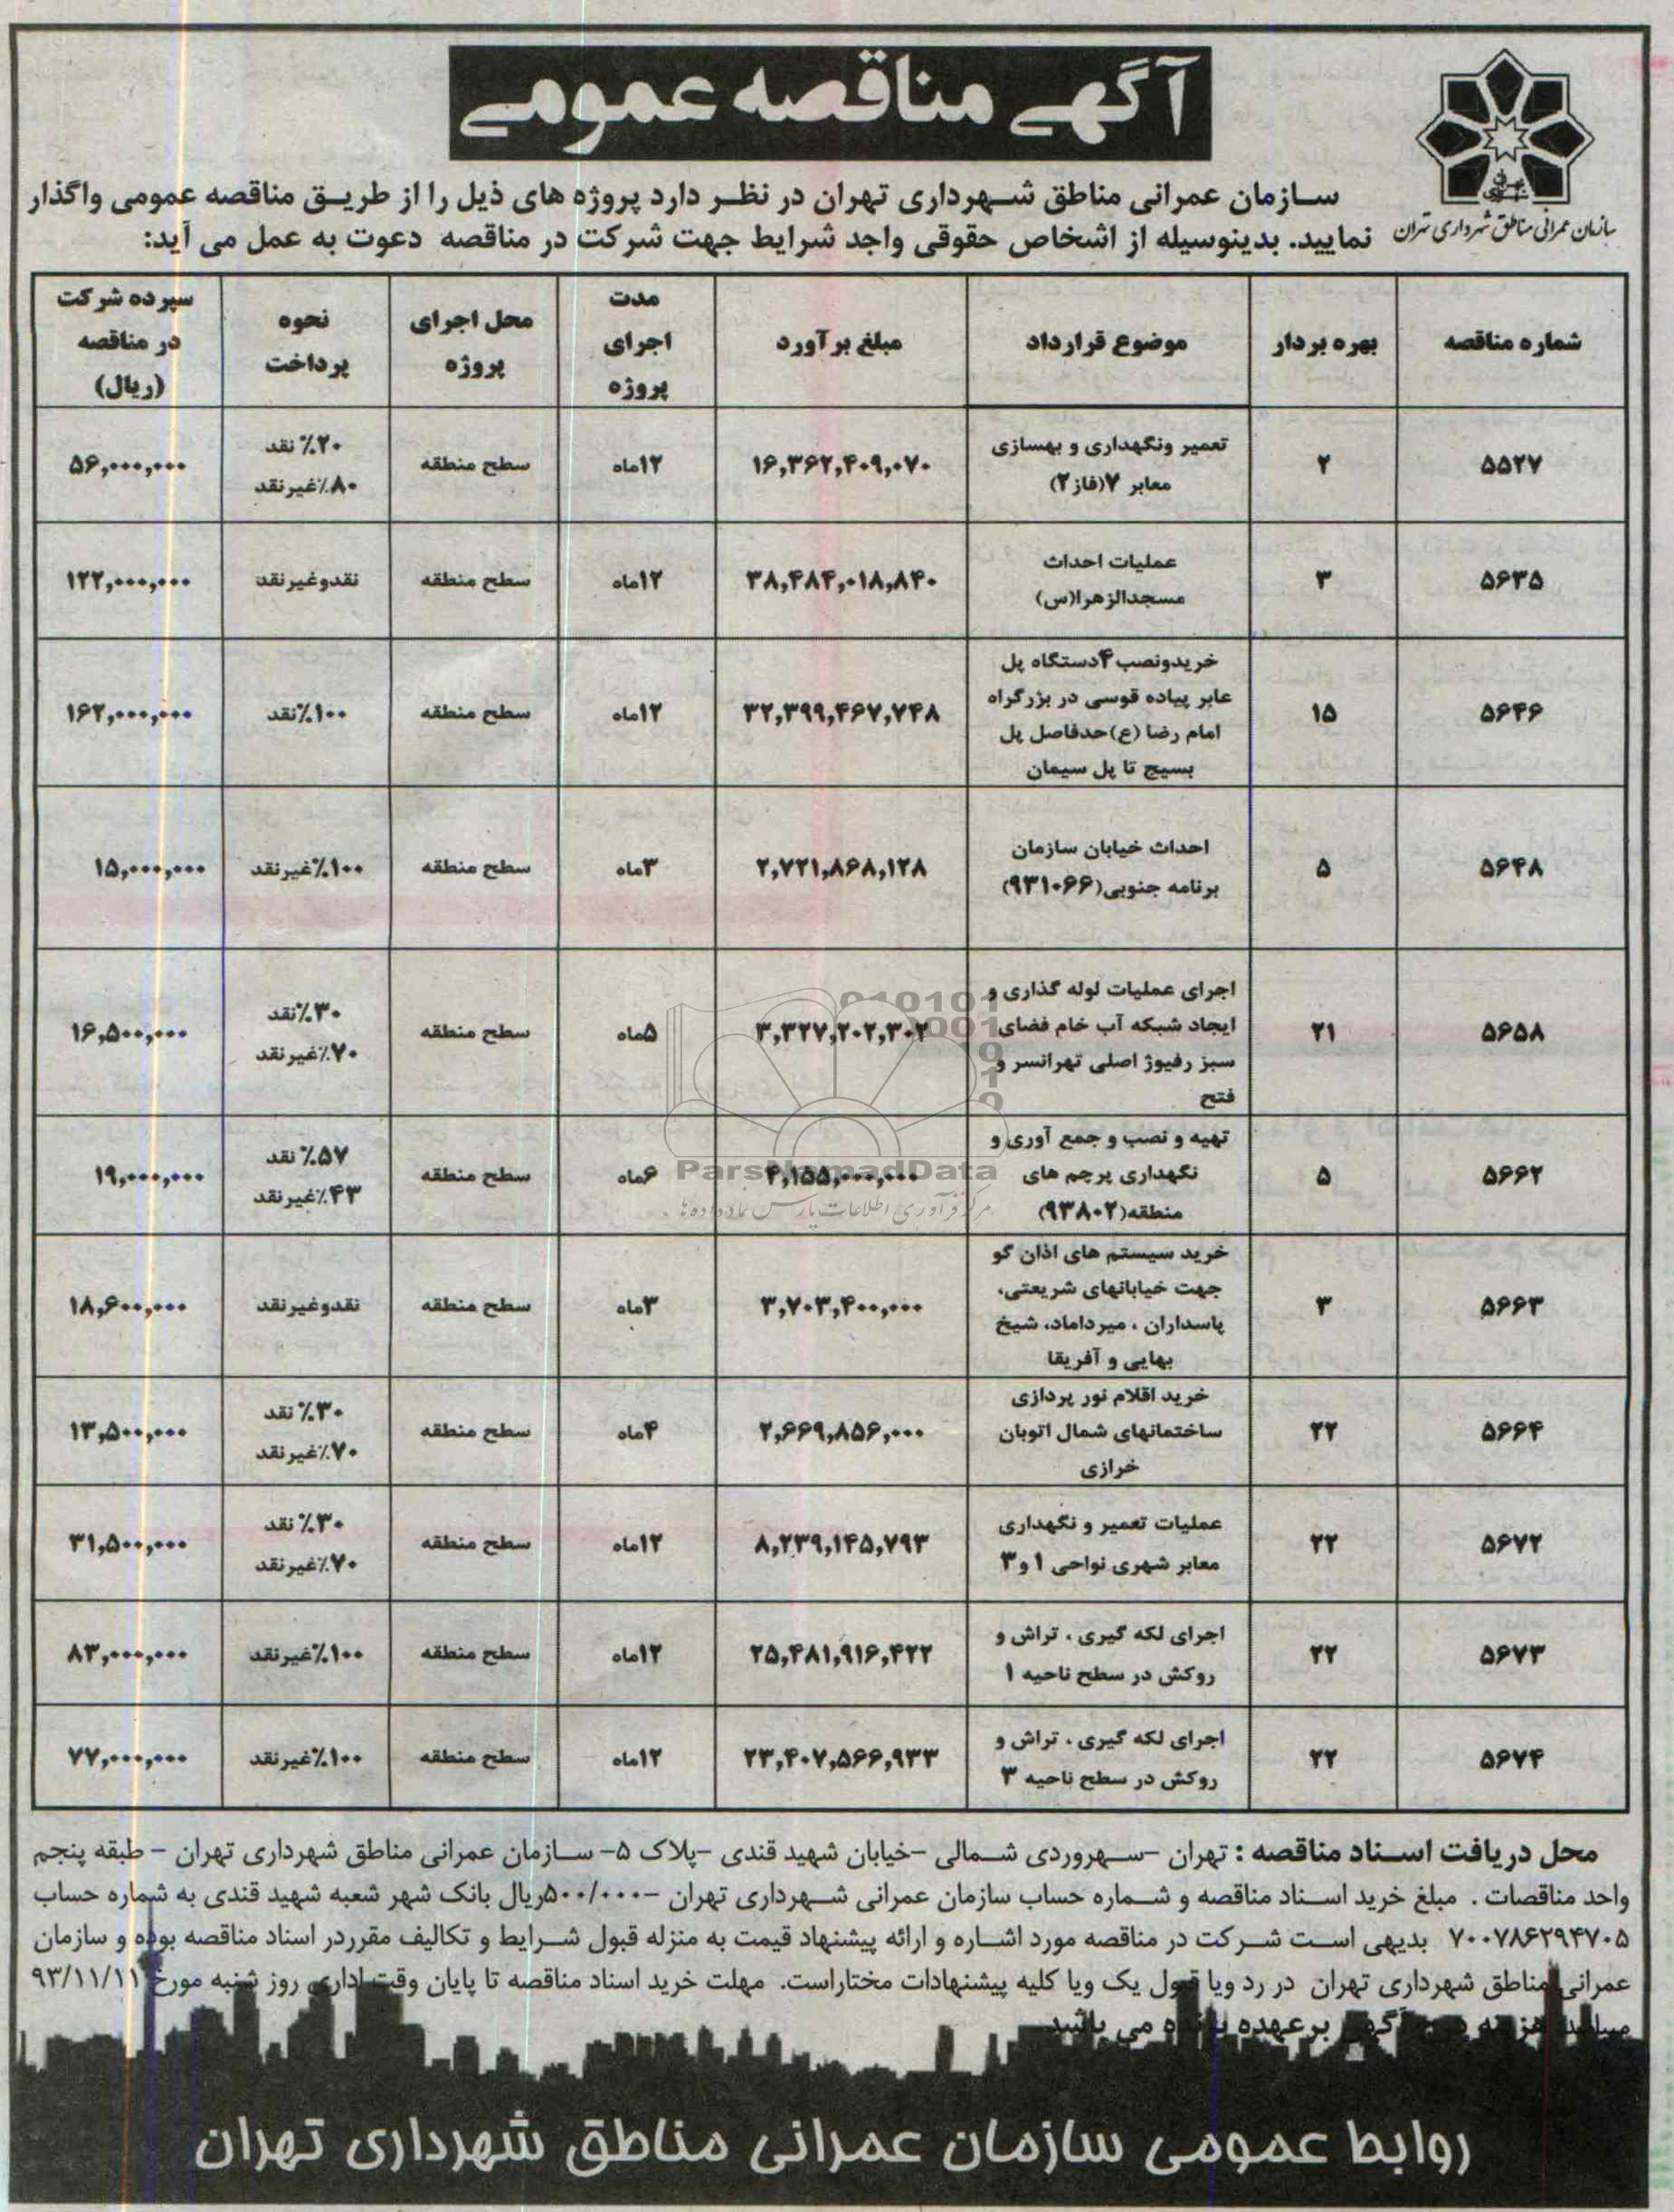 آگهی مناقصه عمومی
سازمان عمرانی مناطق شهرداری تهران
سازمان عمرانی مناطق شهرداری تهران در نظر دارد پروژه های ذیل را از طریق مناقصه عمومی واگذار
نمایید. بدینوسیله از اشخاص حقوقی واجد شرایط جهت شرکت در مناقصه دعوت به عمل می آید:
شماره مناقصه | بهره بردار | موضوع قرارداد | مبلغ برآورد | مدت اجرای پروژه | محل اجرای پروژه | نحوه پرداخت | سپرده شرکت در مناقصه (ریال)
۵۵۲۷ | ۲ | تعمیر ونگهداری و بهسازی معابر ۷(فاز۲) | ۱۶,۳۶۲,۴۰۹,۰۷۰ | ۱۲ماه | سطح منطقه | ۲۰٪ نقد ۸۰٪غیرنقد | ۵۶,۰۰۰,۰۰۰
۵۶۳۵ | ۳ | عملیات احداث مسجدالزهرا(س) | ۳۸,۴۸۴,۰۱۸,۸۴۰ | ۱۲ماه | سطح منطقه | نقدوغیرنقد | ۱۲۲,۰۰۰,۰۰۰
۵۶۴۶ | ۱۵ | خریدونصب۴دستگاه پل عابر پیاده قوسی در بزرگراه امام رضا (ع)حدفاصل پل بسیج تا پل سیمان | ۳۲,۳۹۹,۴۶۷,۷۴۸ | ۱۲ماه | سطح منطقه | ۱۰۰٪نقد | ۱۶۲,۰۰۰,۰۰۰
۵۶۴۸ | ۵ | احداث خیابان سازمان برنامه جنوبی(۹۳۱۰۶۶) | ۲,۷۲۱,۸۶۸,۱۲۸ | ۳ماه | سطح منطقه | ۱۰۰٪غیرنقد | ۱۵,۰۰۰,۰۰۰
۵۶۵۸ | ۲۱ | اجرای عملیات لوله گذاری و ایجاد شبکه آب خام فضای سبز رفیوژ اصلی تهرانسر و فتح | ۳,۳۲۷,۲۰۲,۳۰۲ | ۵ماه | سطح منطقه | ۳۰٪نقد ۷۰٪غیرنقد | ۱۶,۵۰۰,۰۰۰
۵۶۶۲ | ۵ | تهیه و نصب و جمع آوری و نگهداری پرچم های منطقه(۹۳۸۰۲) | ۴,۱۵۵,۰۰۰,۰۰۰ | ۶ماه | سطح منطقه | ۵۷٪ نقد ۴۳٪غیرنقد | ۱۹,۰۰۰,۰۰۰
۵۶۶۳ | ۳ | خرید سیستم های اذان گو جهت خیابانهای شریعتی، پاسداران ، میرداماد، شیخ بهایی و آفریقا | ۳,۷۰۳,۴۰۰,۰۰۰ | ۳ماه | سطح منطقه | نقدوغیرنقد | ۱۸,۶۰۰,۰۰۰
۵۶۶۴ | ۲۲ | خرید اقلام نور پردازی ساختمانهای شمال اتوبان خرازی | ۲,۶۶۹,۸۵۶,۰۰۰ | ۴ماه | سطح منطقه | ۳۰٪ نقد ۷۰٪غیرنقد | ۱۳,۵۰۰,۰۰۰
۵۶۷۲ | ۲۲ | عملیات تعمیر و نگهداری معابر شهری نواحی ۱ و۳ | ۸,۲۳۹,۱۴۵,۷۹۳ | ۱۲ماه | سطح منطقه | ۳۰٪ نقد ۷۰٪غیرنقد | ۳۱,۵۰۰,۰۰۰
۵۶۷۳ | ۲۲ | اجرای لکه گیری ، تراش و روکش در سطح ناحیه ۱ | ۲۵,۴۸۱,۹۱۶,۴۲۲ | ۱۲ماه | سطح منطقه | ۱۰۰٪غیرنقد | ۸۳,۰۰۰,۰۰۰
۵۶۷۴ | ۲۲ | اجرای لکه گیری ، تراش و روکش در سطح ناحیه ۳ | ۲۳,۴۰۷,۵۶۶,۹۳۳ | ۱۲ماه | سطح منطقه | ۱۰۰٪غیرنقد | ۷۷,۰۰۰,۰۰۰
ParsNamadData
مرکز فرآوری اطلاعات پارس نماد داده ها
محل دریافت اسناد مناقصه : تهران –سهروردی شمالی –خیابان شهید قندی –پلاک ۵– سازمان عمرانی مناطق شهرداری تهران – طبقه پنجم
واحد مناقصات . مبلغ خرید اسناد مناقصه و شماره حساب سازمان عمرانی شهرداری تهران –۵۰۰/۰۰۰ریال بانک شهر شعبه شهید قندی به شماره حساب
۷۰۰۷۸۶۲۹۴۷۰۵ بدیهی است شرکت در مناقصه مورد اشاره و ارائه پیشنهاد قیمت به منزله قبول شرایط و تکالیف مقرردر اسناد مناقصه بوده و سازمان
عمرانی مناطق شهرداری تهران در رد ویا قبول یک ویا کلیه پیشنهادات مختاراست. مهلت خرید اسناد مناقصه تا پایان وقت اداری روز شنبه مورخ ۹۳/۱۱/۱۱
میباشد هزینه آگهی برعهده برنده می باشد
روابط عمومی سازمان عمرانی مناطق شهرداری تهران